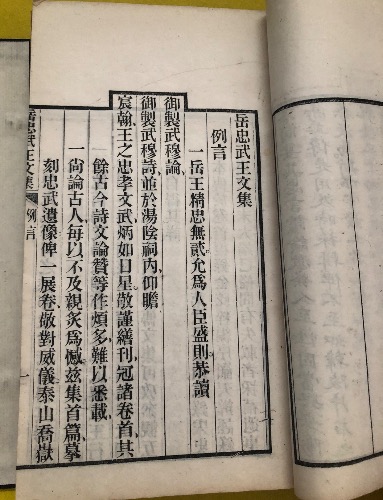 岳忠武王文集
例言
一岳王精忠無貳允爲人臣盛則恭讀
御製武穆論
御製武穆詩並於湯陰祠內仰瞻
宸翰王之忠孝文武炳如日星敬謹繕刊冠諸卷首其
餘古今詩文論贊等作頗多難以悉載
一尚論古人每以不及親炙爲憾兹集首篇摹
刻忠武遺像俾一展卷敬對威儀泰山喬嶽
岳忠武王文集 例言 一